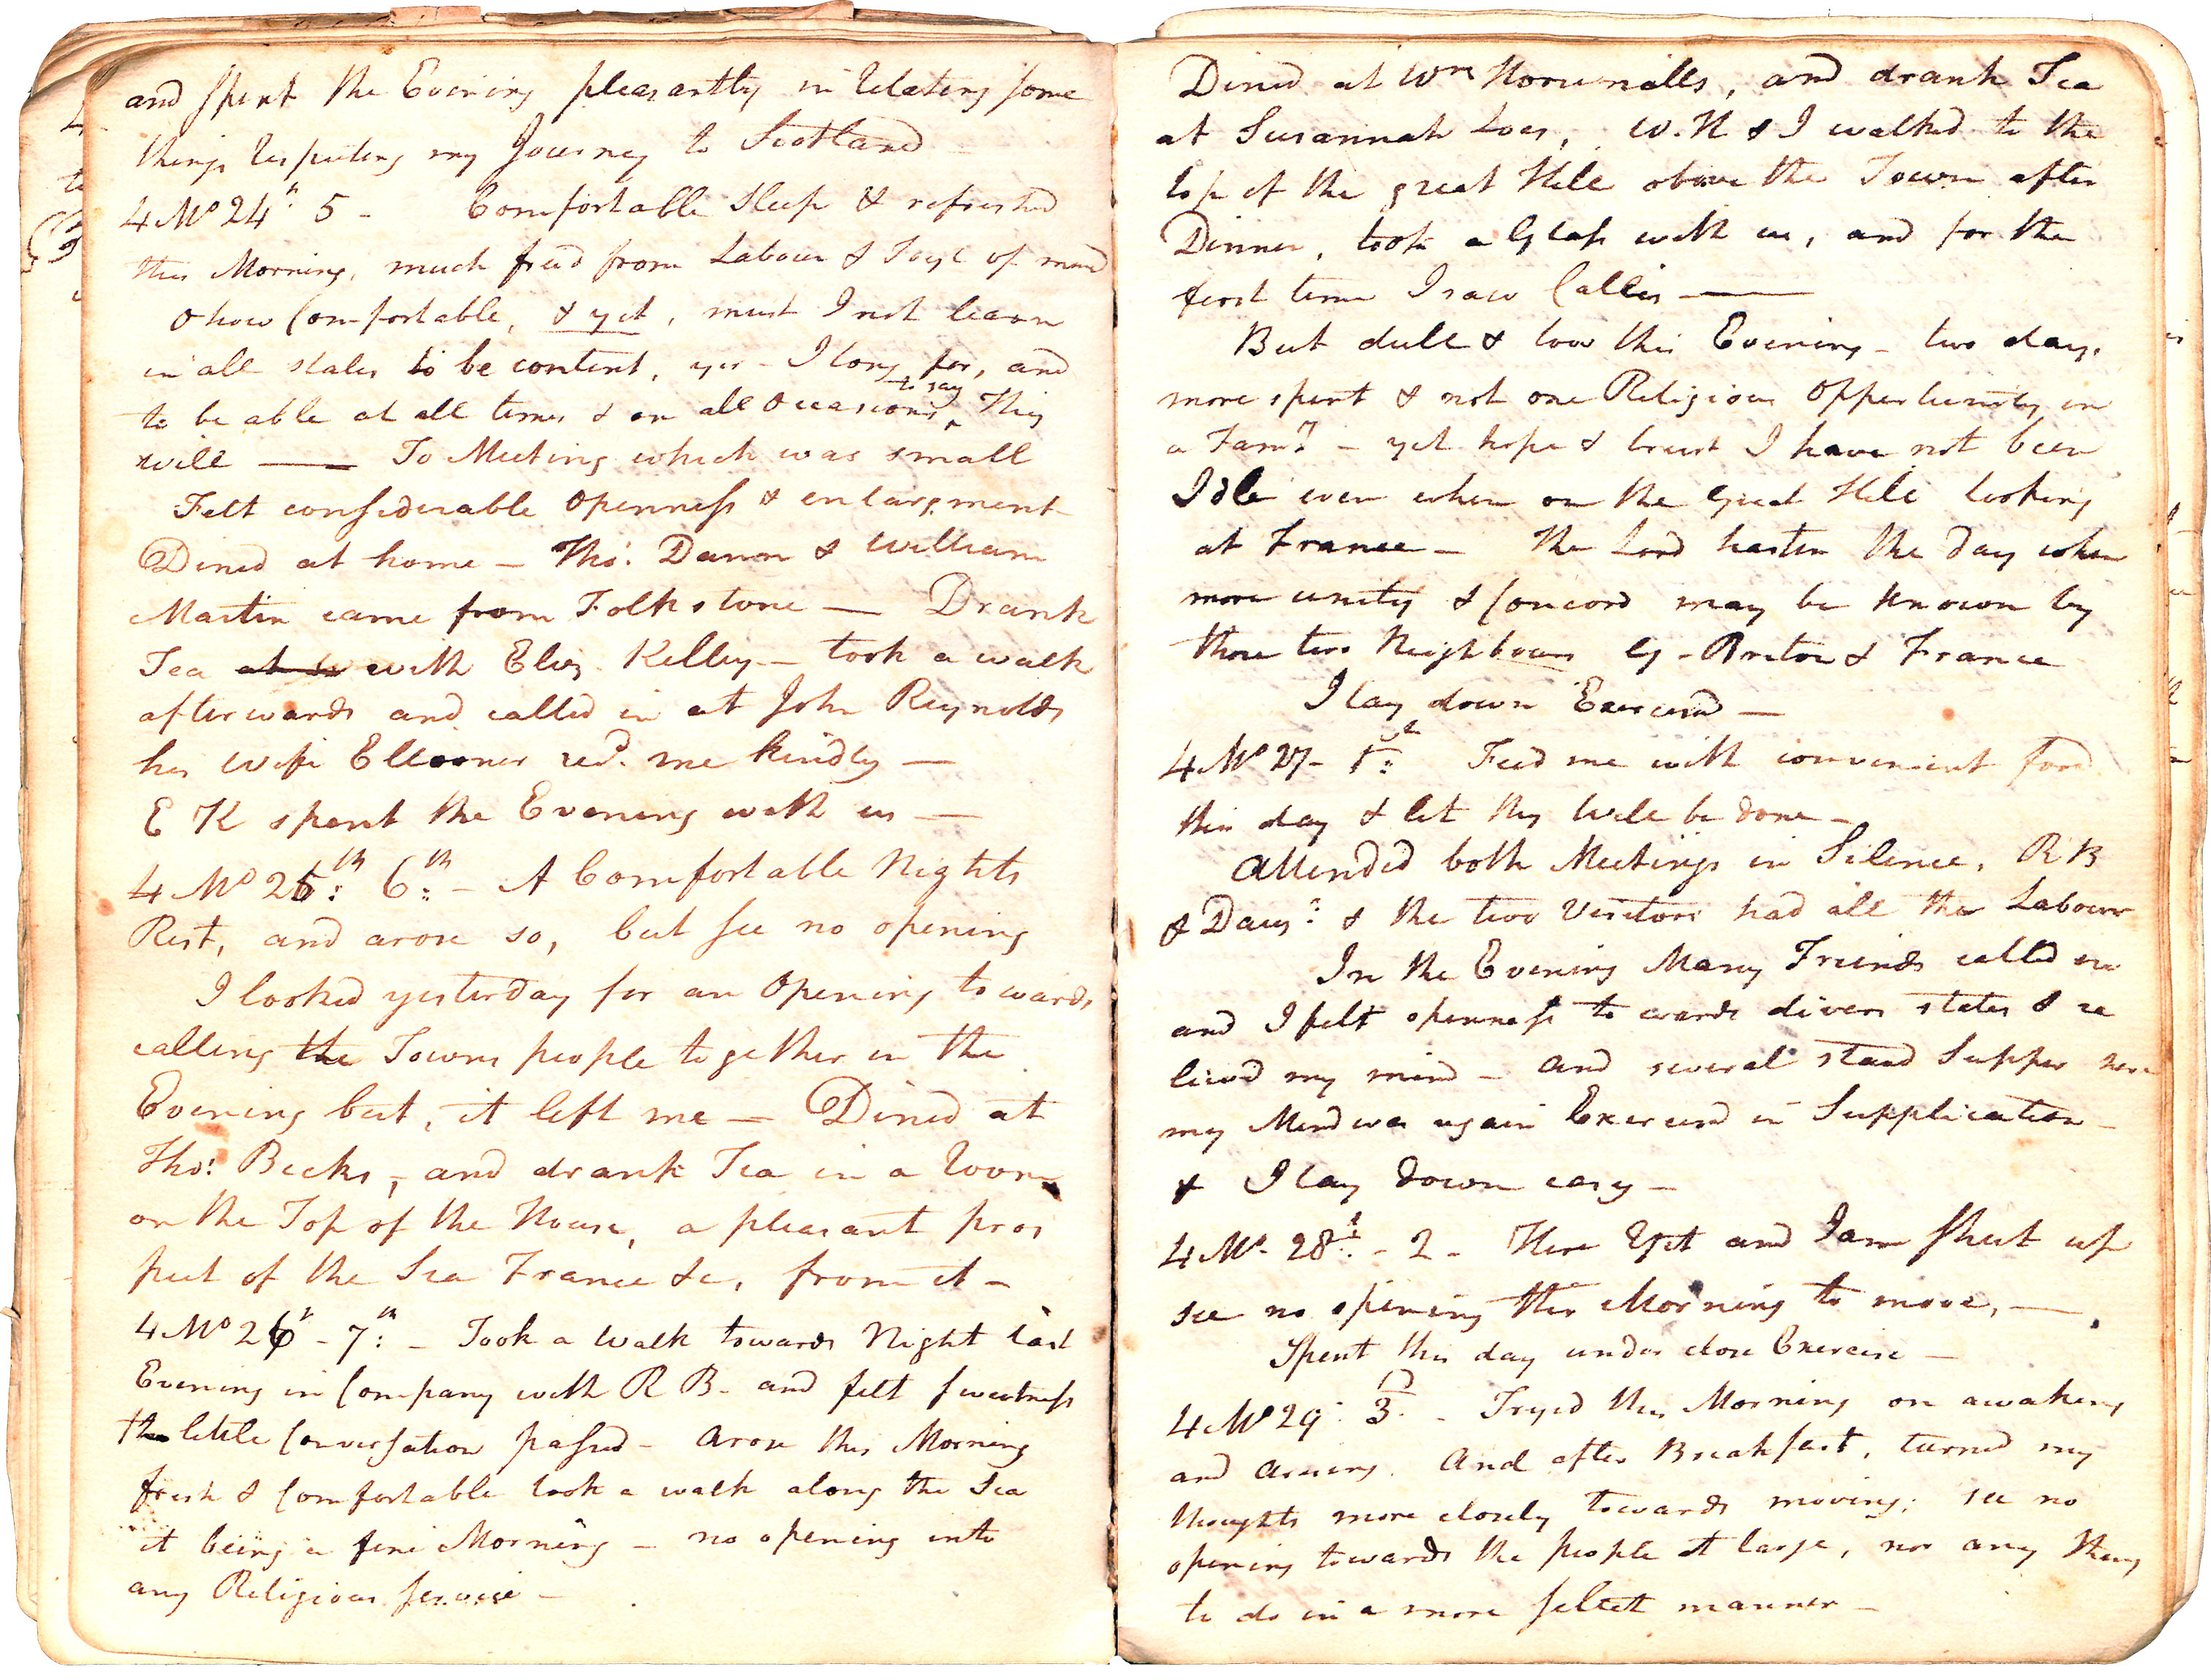 and spent the Evening pleasantly in relating some
things respecting my Journey to Scotland
4 Mo 24th 5 - Comfortable Sleep & refreshed
this Morning, much freed from Labour & Toyl of mind
O how Comfortable, & yet, must I not learn
in all states to be content, yes - I long for, and
to be able at all times & on all Occasions to say Thy
will — To Meeting which was small
Felt considerable Openness & enlargment
Dined at home - Thos. Dann & William
Martin came from Folkstone — Drank
Tea at with Eliz. Kelley - took a walk
afterwards and called in at John Reynolds
his Wife Elleoner recd. me kindly —
E K spent the Evening with us —
4 Mo 25th: 6th: - A Comfortable Nights
Rest, and arose so, but see no opening
I looked yesterday for an Opening towards
calling the Towns people together in the
Evening but, it left me - Dined at
Thos. Becks, - and drank Tea in a Room
on the Top of the House, a pleasant pros
pect of the Sea France &c, from it -
4 Mo 26th - 7th: - Took a Walk towards Night last
Evening in Company with R B - and felt sweetness
tho little Conversation passed - Arose this Morning
fresh & Comfortable took a walk along the Sea
it being a fine Morning - no opening into
any Religious service -
Dined at Wm Horsnalls, and drank Tea
at Susannah , W. H & I walked to the
top of the great Hill above the Town after
Dinner, took a Glass with us, and for the
first time I saw Callis —
But dull & low this Evening - two days
more spent & not one Religious Opportunity in
a Famy. - yet hope & trust I have not been
Idle even when on the Great Hill looking
at France - the Lord hasten the day when
more unity & Concord may be known by
those two Neighbours G - Briton & France
I lay down Exercised —
4 Mo 27 - 1st: Feed me with convenient food
this day & let thy Will be done -
Attended both Meetings in Silence, R B
& Daugr. & the two Visitors had all the Labour
In the Evening Many Friends called in
and I felt openness towards divers states & re
lievd my mind - and several staid Supper here
my Mind was again Exercised in Supplication -
& I lay down easy -
4 Mo. 28th: - 2 - Here Yet and I am shut up
see no opening this Morning to move, —
Spent this day under close Exercise -
4 Mo 29: 3d. - Tryed this Morning on awaking
and arising. And after Breakfast, turned my
thoughts more closely towards moving; see no
opening towards the people at large, nor any thing
to do in a more select manner -